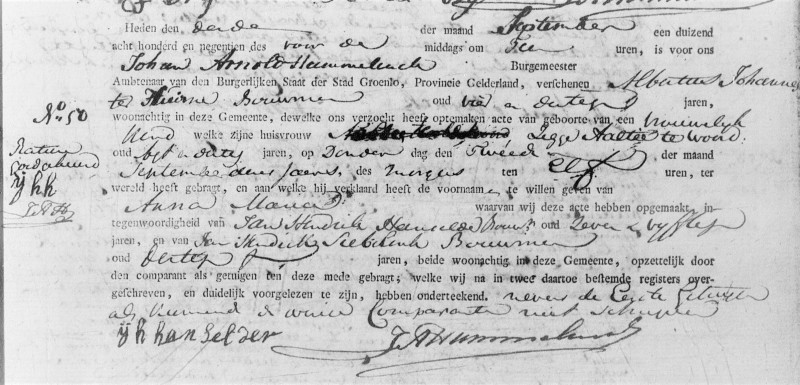 Heden den derde der maand September een duizend
acht honderd en negentien des voor de middags om Tien uren, is voor ons
Johan Arnold Hummelinck Burgemeester
Ambtenaar van den Burgerlijken Staat der Stad Groenlo, Provincie Gelderland, verschenen Albartus Johannes
te Bouwman oud vier en dertig jaren,
N° 50 woonachtig in deze Gemeente, dewelke ons verzocht heeft optemaken acte van geboorte van een vrouwelijk
Kind welke zijne huisvrouw Aaltje te
oud agt en dertig jaren, op Donder dag den Tweede der maand
September dezes Jaars, des morgens ten Elf uren, ter
wereld heeft gebragt, en aan welke hij verklaard heeft de voorname te willen geven van
Anna Maria waarvan wij deze acte hebben opgemaakt, in
tegenwoordigheid van Jan Hendrik oud Zeven en vyftig
jaren, en van Jan Hendrik Bouwman
oud dertig jaren, beide woonachtig in deze Gemeente, opzettelijk door
den comparant als getuigen ten deze mede gebragt; welke wij na in twee daartoe bestemde registers over-
geschreven, en duidelijk voorgelezen te zijn, hebben onderteekend. nevens de Eerste Getuigen
als kunnende de Comparante niet schryven
JAHummelinck